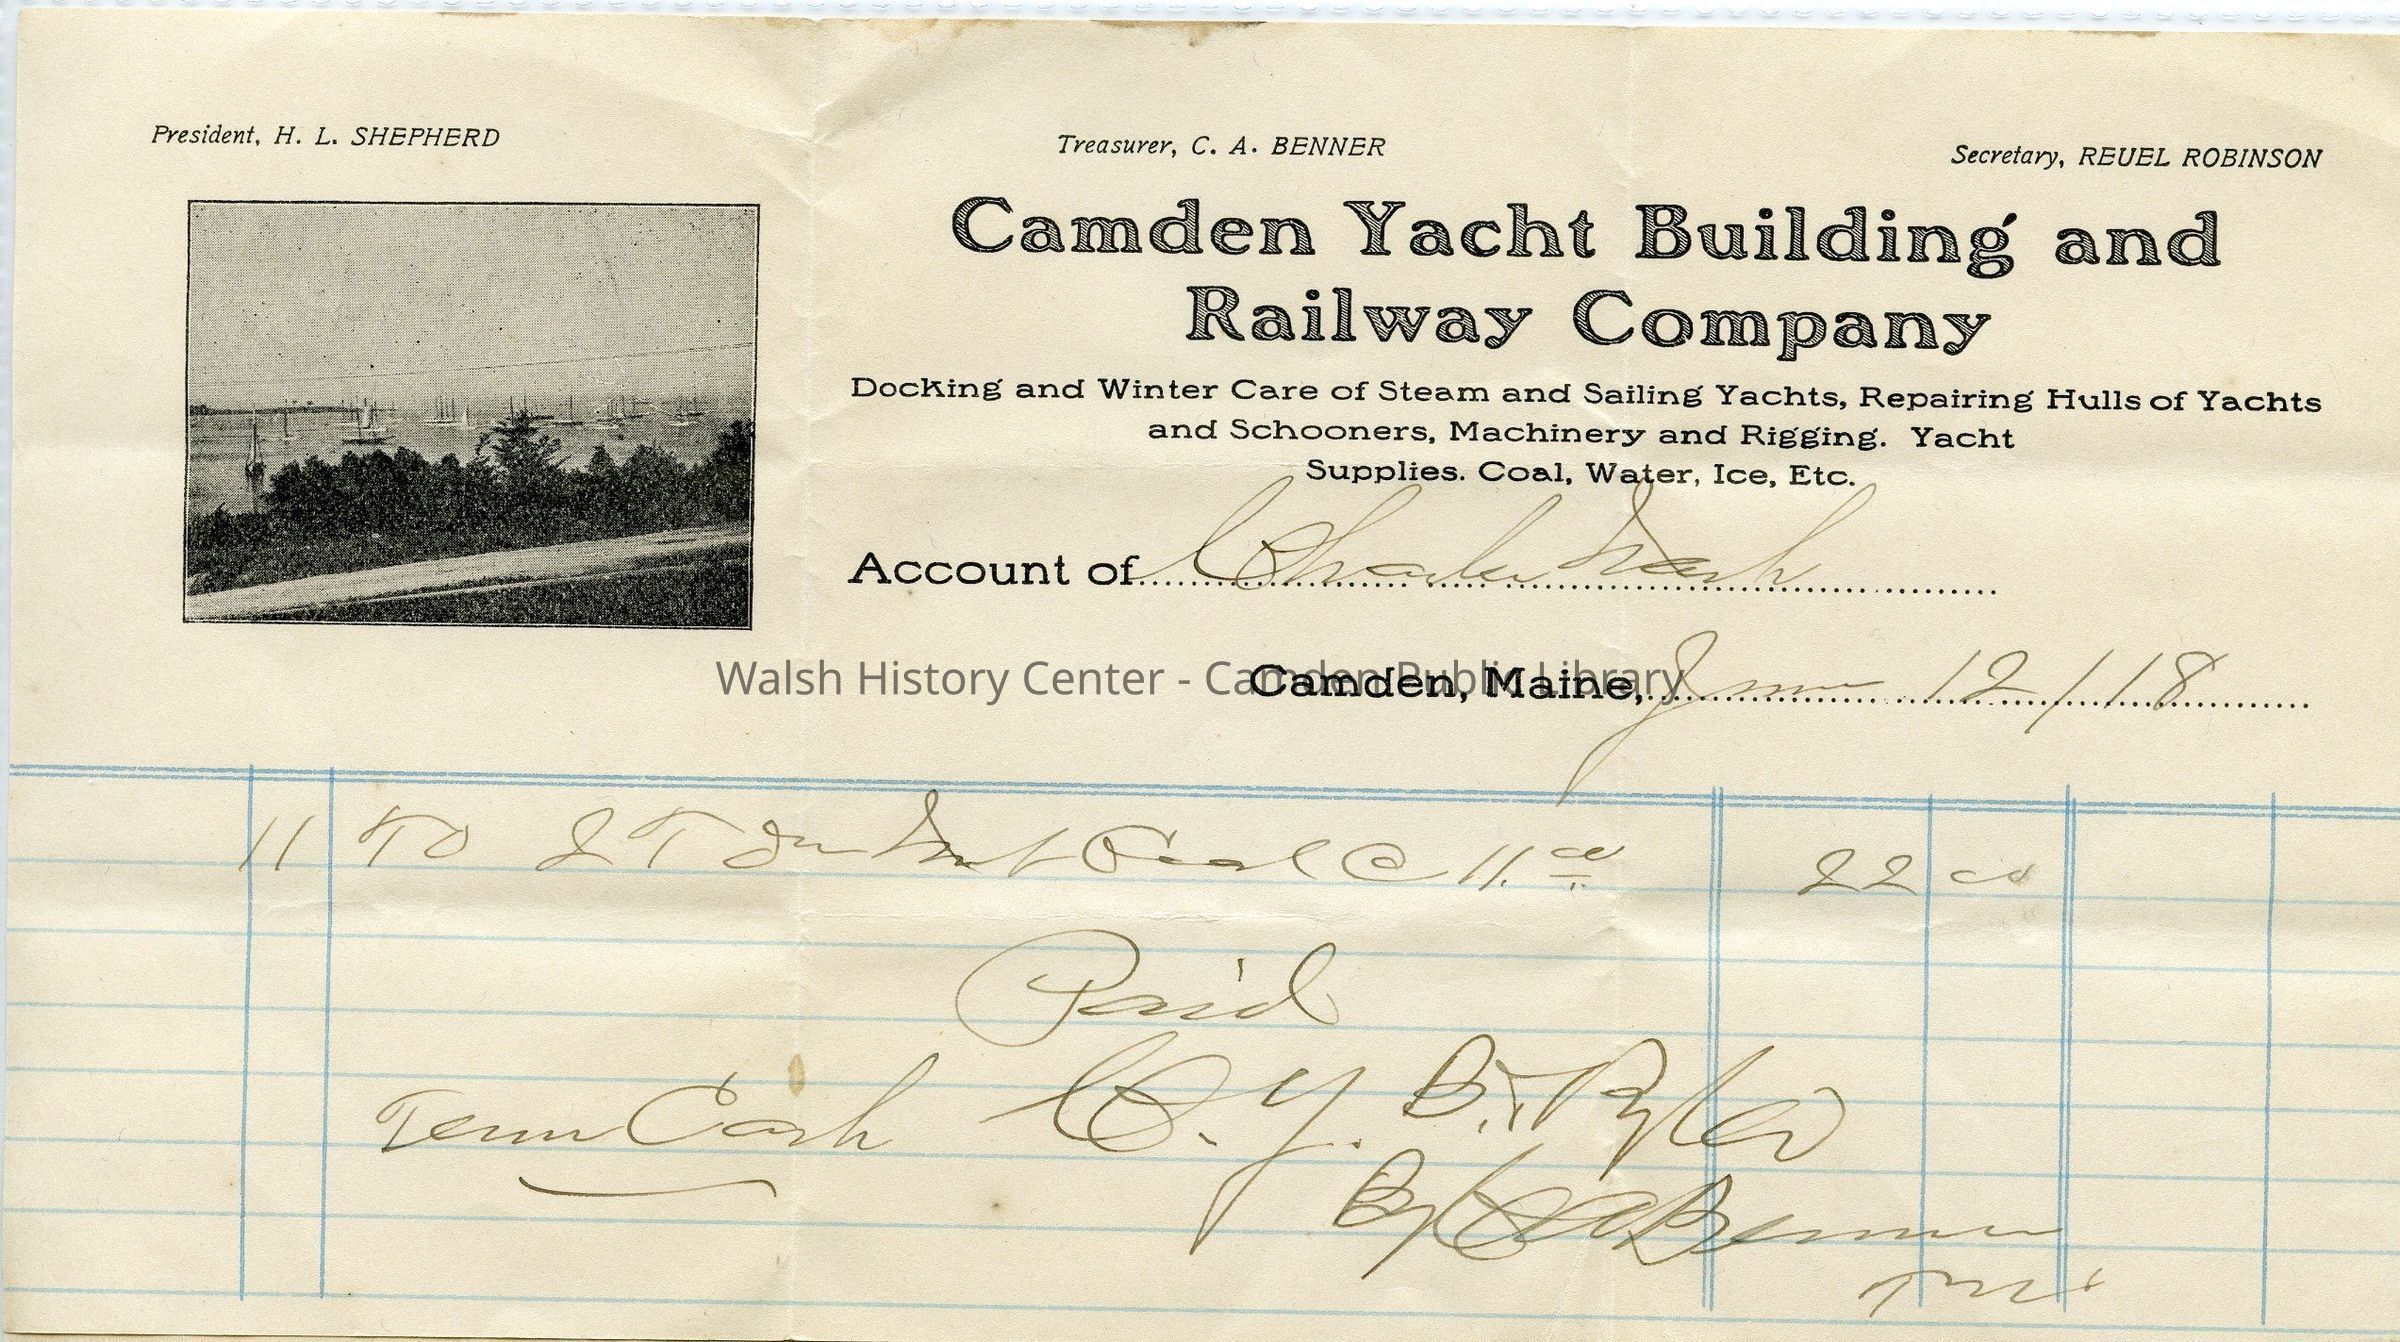 President, H. L. SHEPHERD
Treasurer, C. A. BENNER
Secretary, REUEL ROBINSON
Camden Yacht Building and
Railway Company
Docking and Winter Care of Steam and Sailing Yachts, Repairing Hulls of Yachts
and Schooners, Machinery and Rigging. Yacht
Supplies. Coal, Water, Ice, Etc.
Account of Charles Nash
Walsh History Center - Camden Public Library
Camden, Maine, June 12/18
11 To 2 T Coal @ 11.00 22 00
Paid
Term Cash C. Y. B. & Ry Co
By C A Benner